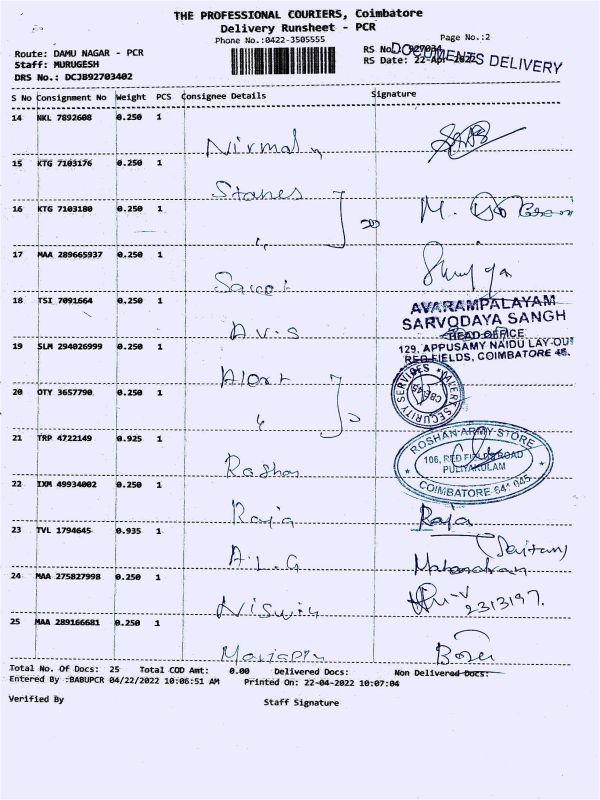 THE PROFESSIONAL COURIERS, Coimbatore
Delivery Runsheet - PCR
Phone No.:0422-3505555
Page No.:2
Route: DAMU NAGAR - PCR
RS No.: 927034
DOCUMENTS DELIVERY
Staff: MURUGESH
RS Date: 22-Apr-2022
DRS No.: DCJB92703402
S No Consignment No Weight PCS Consignee Details Signature
14 NKL 7892608 0.250 1
Nirmal
15 KTG 7103176 0.250 1
Stanes
16 KTG 7103180 0.250 1
M.
17 MAA 289665937 0.250 1
18 TSI 7091664 0.250 1
A.V.S
AVARAMPALAYAM
SARVODAYA SANGH
HEAD OFFICE
129, APPUSAMY NAIDU LAY-OUT
RED FIELDS, COIMBATORE 45.
19 SLM 294026999 0.250 1
Alert
20 OTY 3657790 0.250 1
SECURITY SERVICES
CBE-45
21 TRP 4722149 0.925 1
Roshan
ROSHAN ARMY STORE
106, RED FIELDS ROAD
PULIYAKULAM
COIMBATORE-641 045
22 IXM 49934002 0.250 1
Raja Raja
23 TVL 1794645 0.935 1
A.L.G Mahendran
24 MAA 275827998 0.250 1
2313197.
25 MAA 289166681 0.250 1
Total No. Of Docs: 25 Total COD Amt: 0.00 Delivered Docs: Non Delivered Docs:
Entered By :BABUPCR 04/22/2022 10:06:51 AM Printed On: 22-04-2022 10:07:04
Verified By Staff Signature